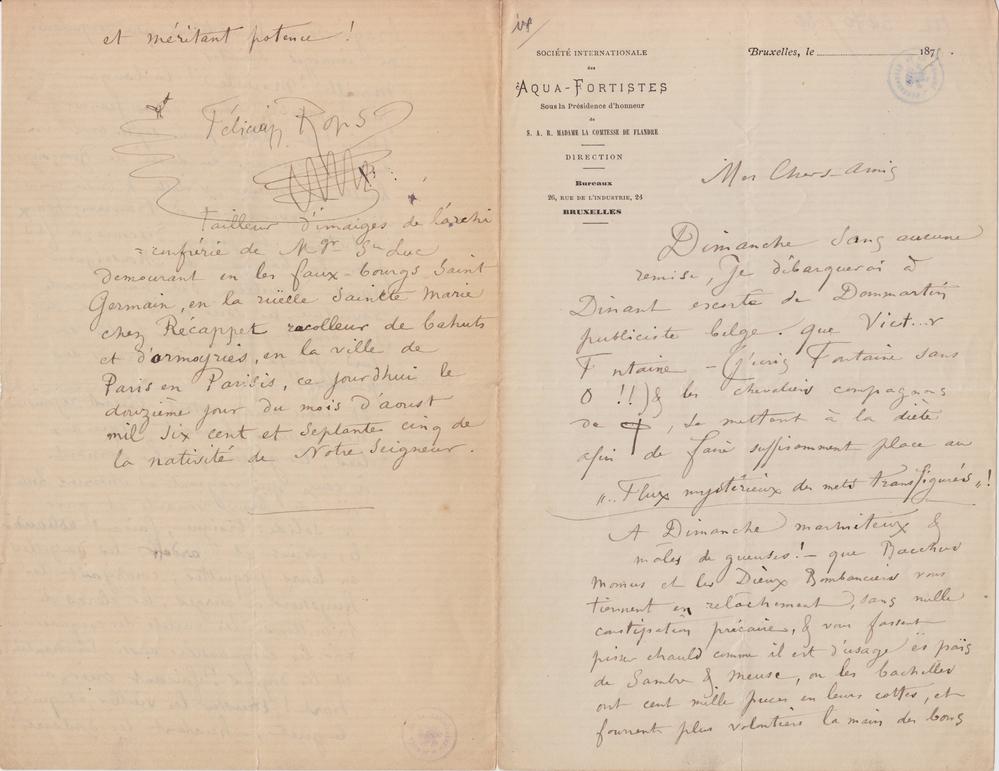 et méritant potence !
Félicien Rops
Tailleur d'imaiges de l'archi
=confrérie de Mgr St Luc
demourant en les faux-bourgs Saint
Germain, en la ruëlle Saincte Marie
chez Récappet racolleur de bahuts
et d'armoyries, en la ville de
Paris en Parisis, ce jourdhui le
douzième jour du mois d'aoust
mil six cent et septante cinq de
la nativité de Notre Seigneur.
SOCIÉTÉ INTERNATIONALE
des
AQUA-FORTISTES
Sous la Présidence d'honneur
de
S. A. R. MADAME LA COMTESSE DE FLANDRE
DIRECTION
Bureaux
26, RUE DE L'INDUSTRIE, 24
BRUXELLES
Bruxelles, le 187
Mes Chers Amis
Dimanche sans aucune
remise, Je débarquerai à
Dinant escorté de Dommartin
publiciste belge. que Vict...r
F ntaine – (j'écris Fontaine sans
O !!) & les chevaliers compagnons
de , se mettent à la diète
afin de faire suffisamment place au
„.. Flux mystérieux des mets transfigurés „!
A Dimanche marmiteux &
mâles de gueuses! – que Bacchus
Momus et les Dieux Bombanciers vous
tiennent en relâchement, sans nulle
constipation précaire, & vous fassent
pisser chauld comme il est d'usage ès païs
de Sambre & Meuse, où les bachelles
ont cent mille puces en leurs cottes, et
fourrent plus volontiers la main des bons